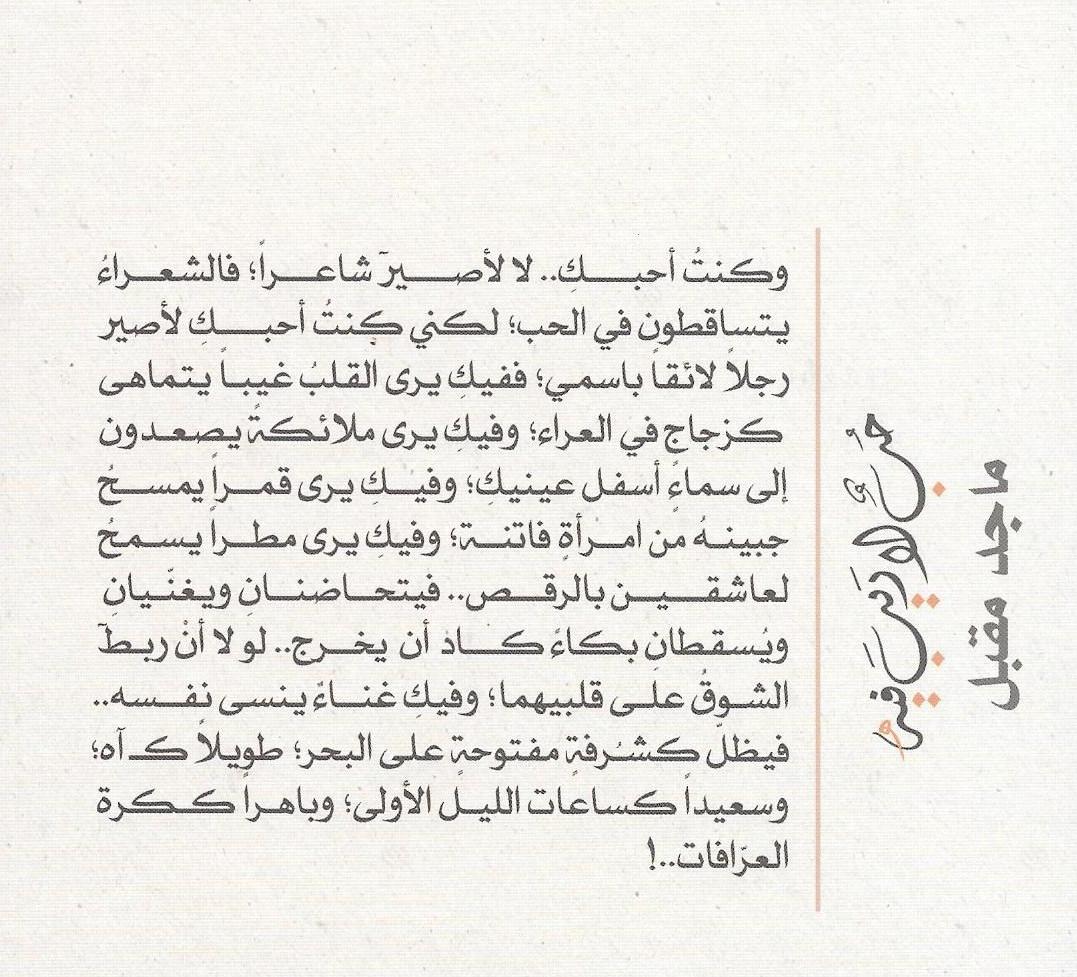 وكنتُ أحبـــكِ.. لا لأصـــيرَ شاعـــراً؛ فالشعـــراءُ
يتساقطون في الحب؛ لكني كنتُ أحبـــكِ لأصير
رجلاً لائقاً باسمي؛ ففيكِ يرى القلبُ غيباً يتماهى
كزجاجٍ في العراء؛ وفيكِ يرى ملائكةً يصعدون
إلى سماءٍ أسفل عينيكِ؛ وفيكِ يرى قمراً يمسحُ
جبينهُ من امرأةٍ فاتنة؛ وفيكِ يرى مطراً يسمحُ
لعاشقين بالرقص.. فيتحاضنانِ ويغنّيانِ
ويُسقطانِ بكاءً كاد أن يخرج.. لو لا أنْ ربطَ
الشوقُ على قلبيهما؛ وفيكِ غناءٌ ينسى نفسه..
فيظلّ كشُرفةٍ مفتوحةٍ على البحر؛ طويلاً كـ آه؛
وسعيداً كساعات الليل الأولى؛ وباهراً ككرة
العرّافات..!
ماجد مقبل